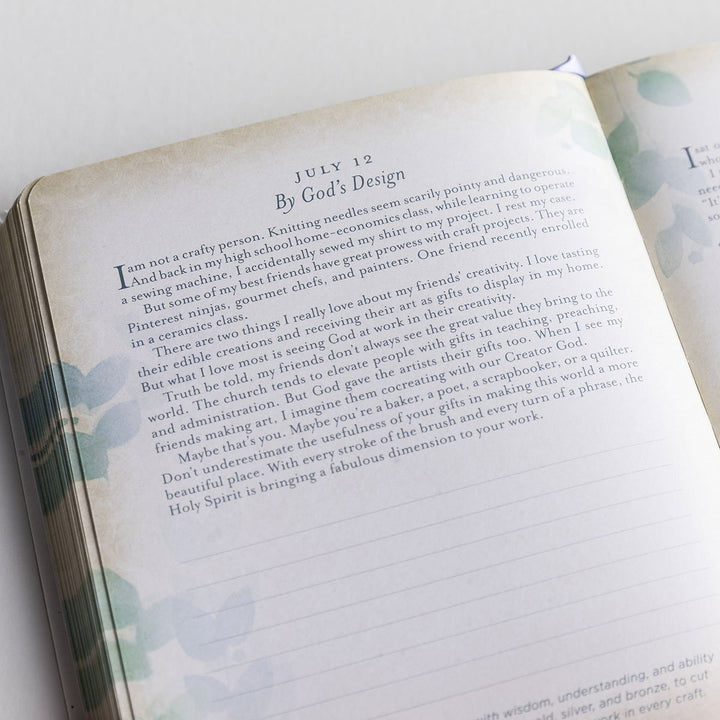 JULY 12
By God's Design
I am not a crafty person. Knitting needles seem scarily pointy and dangerous.
And back in my high school home-economics class, while learning to operate
a sewing machine, I accidentally sewed my shirt to my project. I rest my case.
But some of my best friends have great prowess with craft projects. They are
Pinterest ninjas, gourmet chefs, and painters. One friend recently enrolled
in a ceramics class.
There are two things I really love about my friends' creativity. I love tasting
their edible creations and receiving their art as gifts to display in my home.
But what I love most is seeing God at work in their creativity.
Truth be told, my friends don't always see the great value they bring to the
world. The church tends to elevate people with gifts in teaching, preaching,
and administration. But God gave the artists their gifts too. When I see my
friends making art, I imagine them cocreating with our Creator God.
Maybe that's you. Maybe you're a baker, a poet, a scrapbooker, or a quilter.
Don't underestimate the usefulness of your gifts in making this world a more
beautiful place. With every stroke of the brush and every turn of a phrase, the
Holy Spirit is bringing a fabulous dimension to your work.
with wisdom, understanding, and ability
silver, and bronze, to cut
in every craft.
I sat